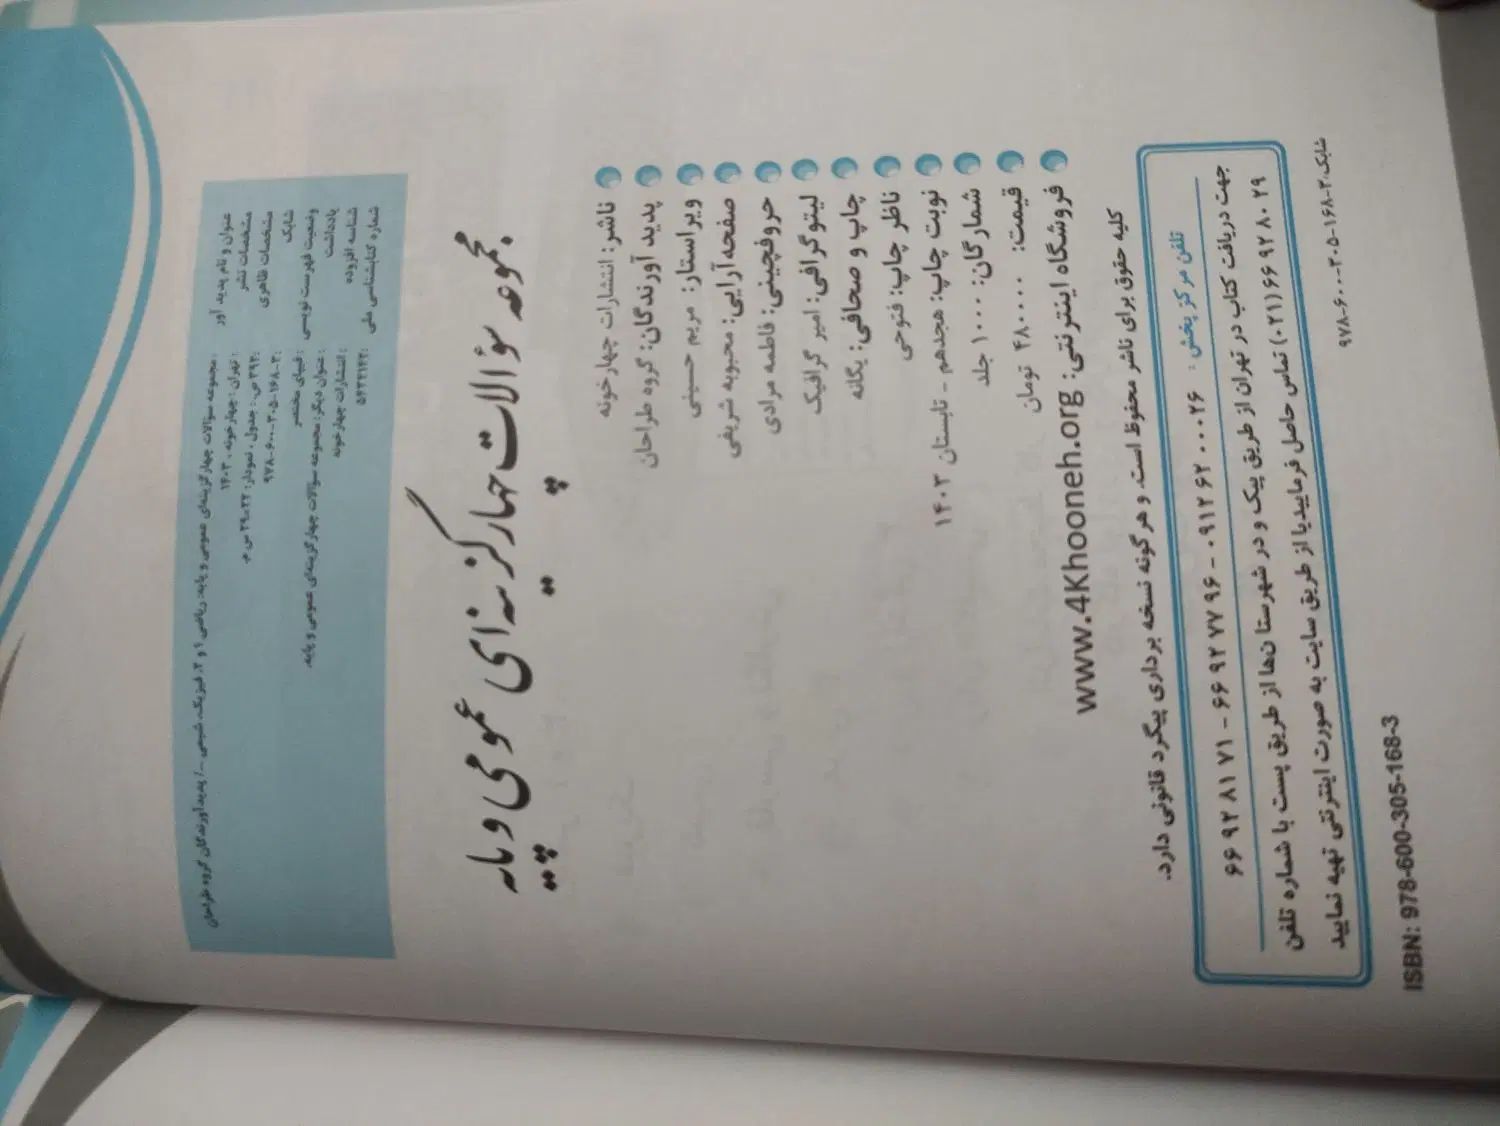 عنوان و نام پدید آور : مجموعه سؤالات چهارگزینه‌ای عمومی و پایه: ریاضی ۱ و ۲، فیزیک، شیمی .../ پدیدآورندگان گروه طراحان
مشخصات نشر : تهران : چهارخونه، ۱۴۰۳
مشخصات ظاهری : ۲۹۴ ص.: جدول، نمودار؛ ۲۲×۲۹ س م.
شابک : ۹۷۸-۶۰۰-۳۰۵-۱۶۸-۳
وضعیت فهرست نویسی : فیپای مختصر
یادداشت : عنوان دیگر: مجموعه سؤالات چهارگزینه‌ای عمومی و پایه.
شناسه افزوده : انتشارات چهارخونه
شماره کتابشناسی ملی
مجموعه سؤالات چهارگزینه‌ای عمومی و پایه
ناشر: انتشارات چهارخونه
پدید آورندگان: گروه طراحان
ویراستار: مریم حسینی
صفحه‌آرایی: محبوبه شریفی
حروفچینی: فاطمه مرادی
لیتوگرافی: امیر گرافیک
چاپ و صحافی: یگانه
ناظر چاپ: فتوحی
نوبت چاپ: هجدهم - تابستان ۱۴۰۳
شمارگان: ۱۰۰۰ جلد
قیمت: ۴۸۰۰۰۰ تومان
فروشگاه اینترنتی: www.4Khooneh.org
کلیه حقوق برای ناشر محفوظ است. و هر گونه نسخه برداری پیگرد قانونی دارد.
تلفن مرکز پخش : ۰۹۱۲۶۲۰۰۰۲۶ - ۶۶۹۲۷۷۹۶ - ۶۶۹۲۸۱۷۱
جهت دریافت کتاب در تهران از طریق پیک و در شهرستان‌ها از طریق پست با شماره تلفن
۶۶۹۲۸۰۲۹ (۰۲۱) تماس حاصل فرمایید یا از طریق سایت به صورت اینترنتی تهیه نمایید
شابک: ۳-۱۶۸-۳۰۵-۶۰۰-۹۷۸
ISBN: 978-600-305-168-3